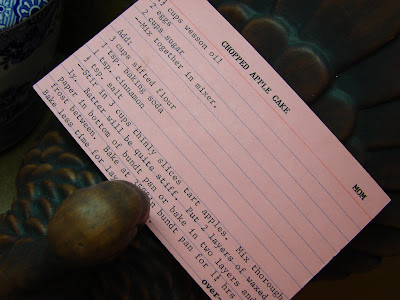 CHOPPED APPLE CAKE
MOM
cups wesson oil
2 eggs
2 cups sugar
—Mix together in mixer.
Add:
3 cups sifted flour
1 tsp. baking soda
tsp. cinnamon
½ tsp. salt
—Stir in 3 cups thinly slices tart apples. Mix thorough
ly. Batter will be quite stiff. Put 2 layers of waxed
paper in bottom of bundt pan or bake in two layers and
frost between. Bake at in bundt pan for 1½ hrs
Bake less time for
over—